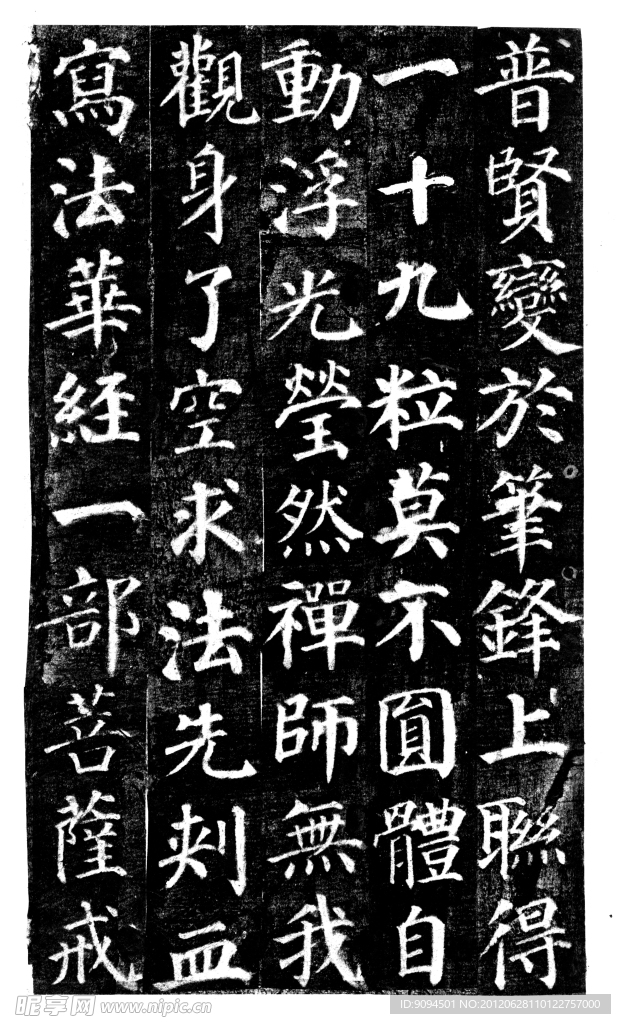 普賢變於筆鋒上聯得
一十九粒莫不圓體自
動浮光瑩然禪師無我
觀身了空求法先刾血
寫法華經一部菩薩戒
昵享网 www.nipic.cn
ID:9094501 NO:20120628110122757000